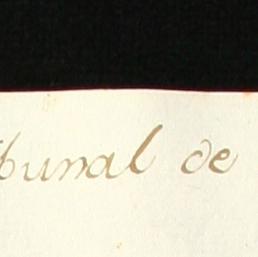 bunal de